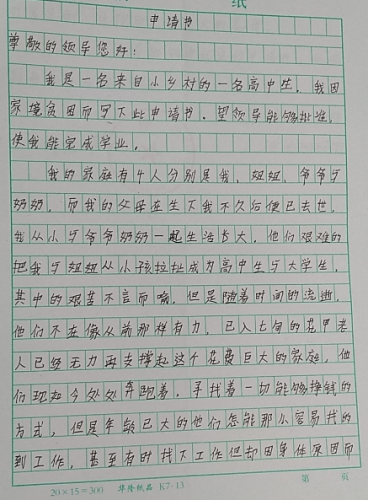 纸
申请书
尊敬的领导您好:
我是一名来自小乡村的一名高中生,我因
家境贫困而写下此申请书,望领导能够批准,
使我能完成学业。
我的家庭有4人分别是我,姐姐,爷爷与
奶奶,而我的父母在生下我不久后便已去世,
我从小与爷爷奶奶一起生活长大,他们艰难的
把我与姐姐从小孩拉扯成为高中生与大学生,
其中的艰苦不言而喻,但是随着时间的流逝,
他们不在像从前那样有力,已入七旬的花甲老
人已经无力再支撑起这个花费巨大的家庭,他
们现如今处处奔跑着,寻找着一切能够挣钱的
方式,但是年龄已大的他们怎能那么容易找的
到工作,甚至有时找下工作但却因身体原因而
20×15=300 K7-13 第 页